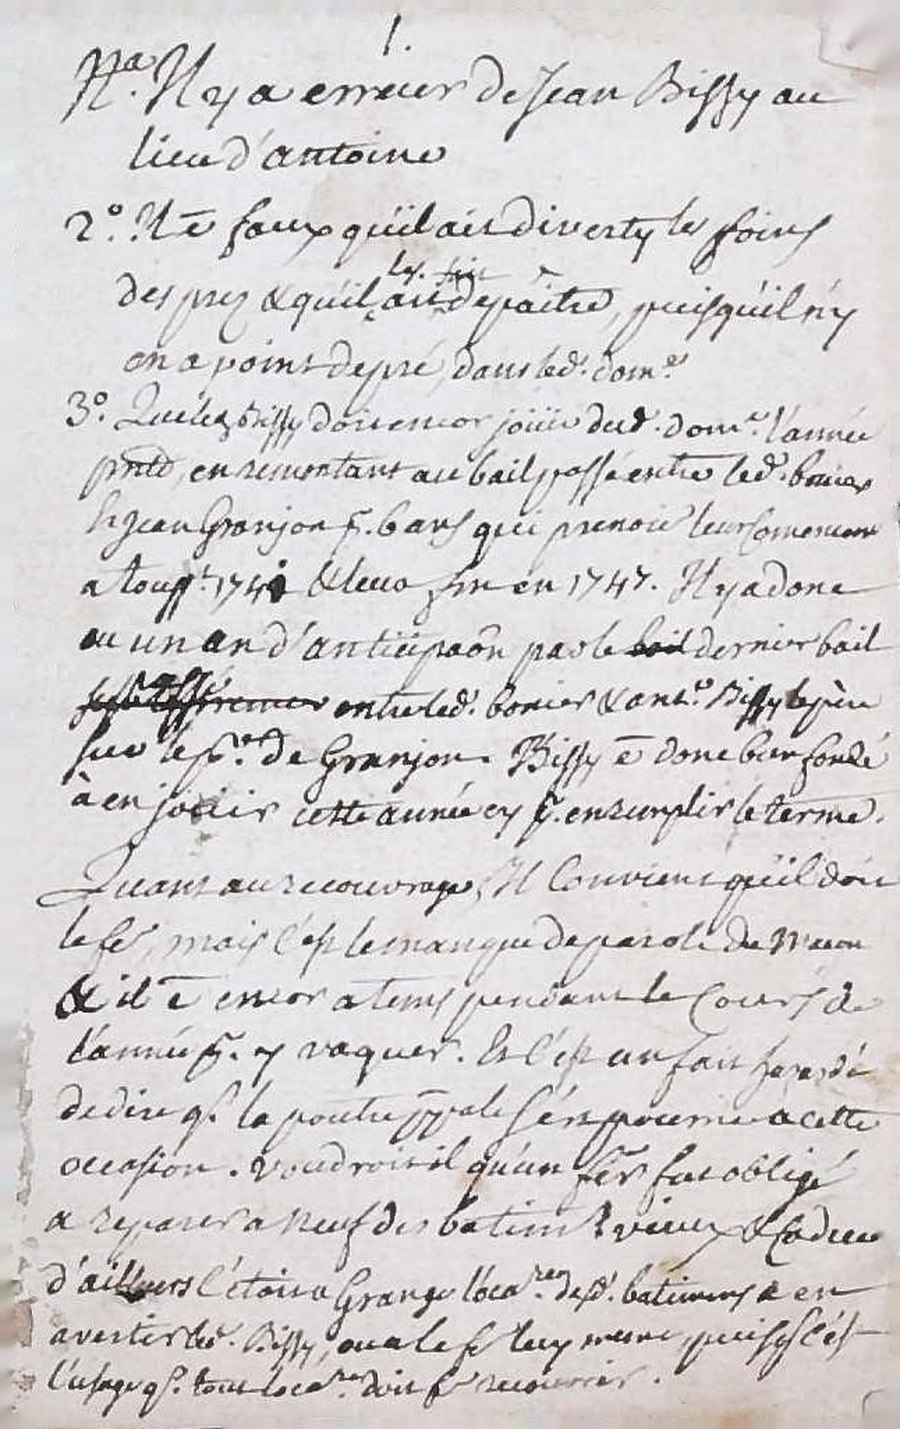 1.
Na. Il y a erreur de Jean Bissy au
lieu d'antoine
2°. Il ē faux qu'il ait diverty les foins
des prez & qu'il les ait fait depaitre, puisqu'il n'y
en a point de pré, dans led. dome.
3°. Que led. Bissy doit encor joüir dud. dome. l'année
pnte, en remontant au bail passé entre led. bonier
& Jean Granjon p. 6 ans qui prenoit leur
a touss.t 174 & leur fin en 1747. Il y a donc
eu un an d'anticipaon par le bail dernier bail
entre led. bonier & ant.e Bissy le père
sur le de Granjon. Bissy ē donc bien fondé
à en joüir cette année cy p. en remplir le terme.
Quant au recouvrage, Il Convient qu'il doit
le fe, mais c'est le manque de parole du
& il ē encor a tems pendant le Cours de
l'année p. y vaquer. Et c'est un fait hazardé
de dire q. la poutre ppale s'est pourrie à cette
occasion. Voudroit il qu'un fer fut obligé
a reparer a neuf des batim.ts vieux & Caducs
d'ailleurs c'étoit a Grange locare desd. batimens a en
avertir led. Bissy, ou a le fe luy meme, puisq. c'est
l'usage q. tout locare doit fe recouvrir.